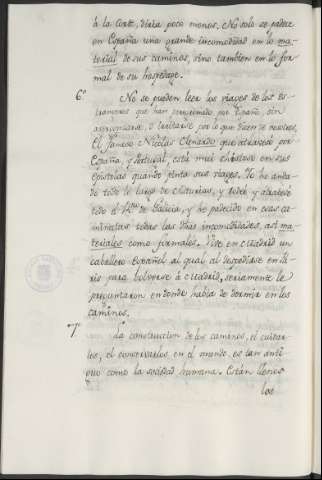 à la Corte, dista poco menos. No solo se padece
en España una grande incomodidad en lo ma-
terial de sus caminos, sino tambien en lo for-
mal de su hospedage.
6.º No se pueden leer los viages de los Es-
trangeros que han peregrinado por España sin
avergonzarse, ò irritarse por lo que dicen de nosotros.
El famoso Nicolas Clenardo que atravesò por
España, y Portugal, està mui chistoso en sus
epistolas quando pinta sus viages. Yo he anda-
do todo lo largo de Asturias, y todo y atravesè
todo el Rno de Galicia, y he padecido en esas ca-
minatas todas las dhas incomodidades, asi ma-
teriales como formales. Vive en Madrid un
caballero Español al qual al despedirse en Pa-
ris para bolverse à Madrid, seriamente le
preguntaron en donde havia de dormir en los
caminos.
7.º La construccion de los caminos, el cuidar-
los, el conservarlos en el mundo, es tan anti-
guo como la sociedad humana. Están llenos
los